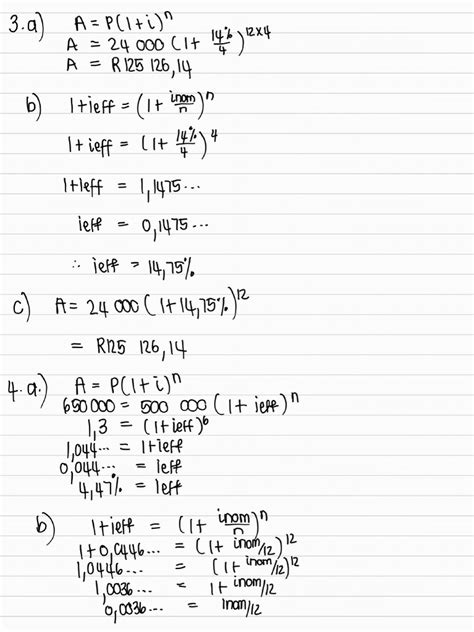 3.a) A = P(1+i)^n
A = 24 000 (1+ 14%/4)^12×4
A = R125 126,14
b) 1+ieff = (1+ inom/n)^n
1+ieff = (1+ 14%/4)^4
1+ieff = 1,1475...
ieff = 0,1475...
∴ ieff = 14,75%
c) A = 24 000 (1+14,75%)^12
= R125 126,14
4.a.) A = P(1+i)^n
650 000 = 500 000 (1+ ieff)^n
1,3 = (1+ieff)^6
1,044... = 1+ieff
0,044... = ieff
4,47% = ieff
b) 1+ieff = (1+ inom/n)^n
1+0,0446... = (1+ inom/12)^12
1,0446... = (1+ inom/12)^12
1,0036... = 1+ inom/12
0,0036... = inom/12